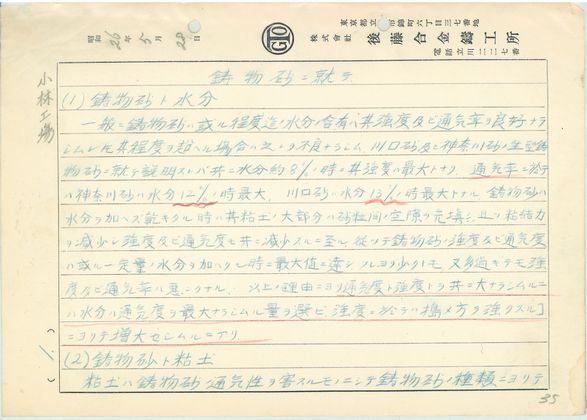 東京都立川市錦町六丁目三七番地
株式會社 後藤合金鑄工所
電話立川二二二七番
GTO
昭和26年5月28日
小林工場
鋳物砂ニ就テ
(1) 鋳物砂ト水分
一般ニ鋳物砂ハ或ル程度迄ノ水分ノ含有ハ其強度及ビ通気率ヲ良好ナラ
シムレ共其程度ヲ超ヘル場合ハ之レヲ不良ナラシム 川口砂及神奈川砂ノ生型鋳
物砂ニ就テ説明スレバ共ニ水分ガ約8%ノ時ハ其強度ハ最大トナリ、通気率ニ於テ
ハ神奈川砂ハ水分12%ノ時最大、川口砂ハ水分13%ノ時最大トナル 鋳物砂ハ
水分ヲ加ヘズ乾キタル時ハ其粘土ノ大部分ハ砂粒間ノ空隙ヲ充填シ 且ツ粘結力
ヲ減少シ強度及ビ通気度モ共ニ減少スルニ至ル 従ツテ鋳物砂ノ強度及ビ通気度
ハ或ル一定量ノ水分ヲ加ヘタル時ニ最大値ニ達シ ソレヨリ少クトモ 又多過ギテモ強
度及ビ通気率ハ悪クナル、以上ノ理由ニヨリ通気度ト強度トヲ共ニ大ナラシムルニ
ハ水分ハ通気度ヲ最大ナラシムル量ヲ選ビ、強度ニ於テハ搗メ方ヲ強クスル
ニヨリテ増大セシムルニアリ
(2) 鋳物砂ト粘土
粘土ハ鋳物砂ノ通気性ヲ害スルモノニシテ鋳物砂ノ種類ニヨリテ
(1.)
35